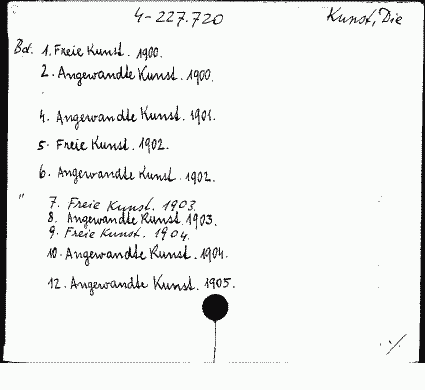 4-227.720 Kunst, Die
Bd. 1. Freie Kunst. 1900.
2. Angewandte Kunst. 1900.
4. Angewandte Kunst. 1901.
5. Freie Kunst. 1902.
6. Angewandte Kunst. 1902.
" 7. Freie Kunst. 1903.
8. Angewandte Kunst. 1903.
9. Freie Kunst. 1904.
10. Angewandte Kunst. 1904.
12. Angewandte Kunst. 1905.
./.